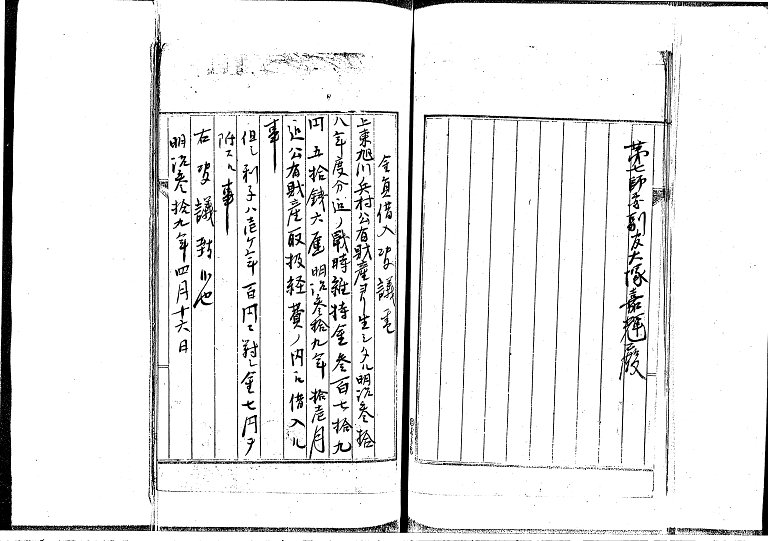 第七師団副官大塚嘉輝殿
金員借入決議書
上東旭川兵村公有財産ヨリ生シタル明治参拾
八年度分迄ノ戦時維持金参百七拾九
円五拾銭六厘明治参拾九年拾壱月
迄公有財産取扱経費ノ内ニ借入ル
事
但シ利子ハ壱ケ年百円ニ對シ金七円ヲ
附スル事
右決議候也
明治参拾九年四月十六日